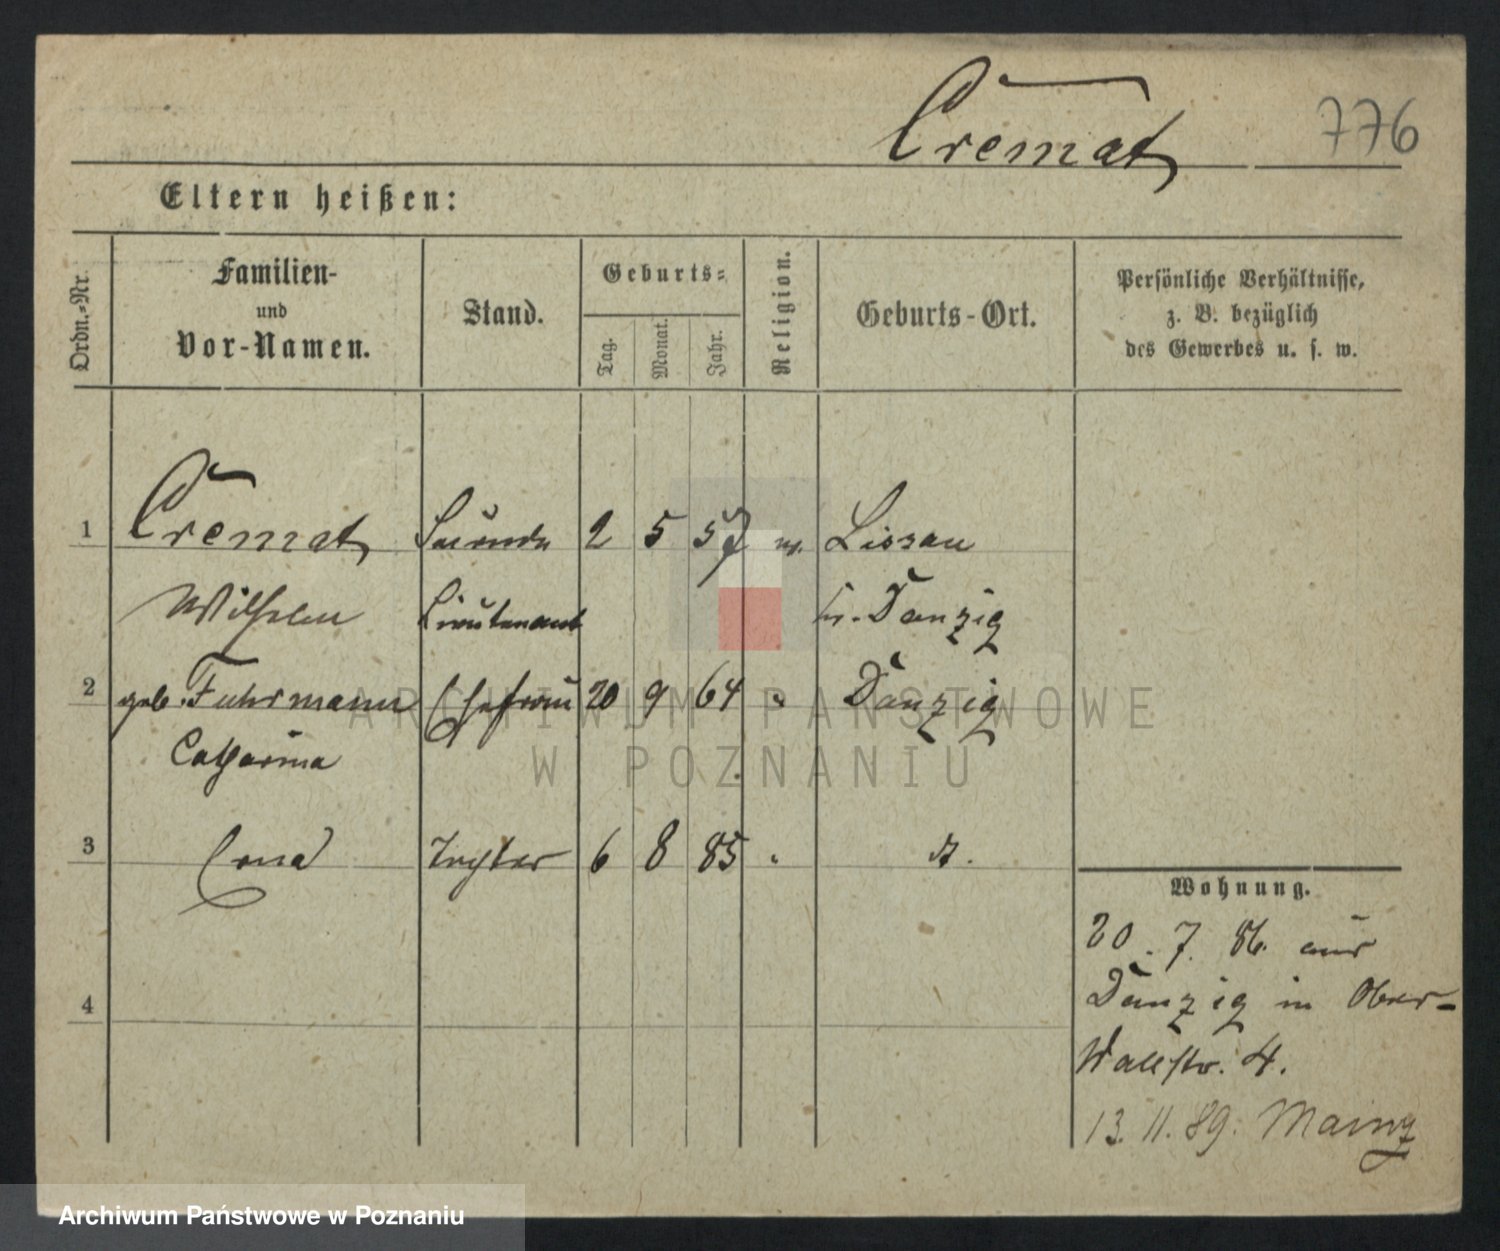 Cremat 776
Eltern heißen:
Ordn.-Nr.
Familien-
und
Vor-Namen.
Stand.
Geburts-
Tag.
Monat.
Jahr.
Religion.
Geburts-Ort.
Persönliche Verhältnisse,
z. B. bezüglich
des Gewerbes u. s. w.
1 Cremat 2 5 57 Lissau
Wilhelm Lieutenant Kr. Danzig
2 geb. Fuhrmann Ehefrau 20 9 64 " Danzig
Catharina
3 Erna Tochter 6 8 85 "
4
Wohnung.
20. 7. 86. aus
Danzig in Ober-
Wallstr. 4.
13. 11. 89. Mainz
ARCHIWUM PAŃSTWOWE
W POZNANIU
Archiwum Państwowe w Poznaniu